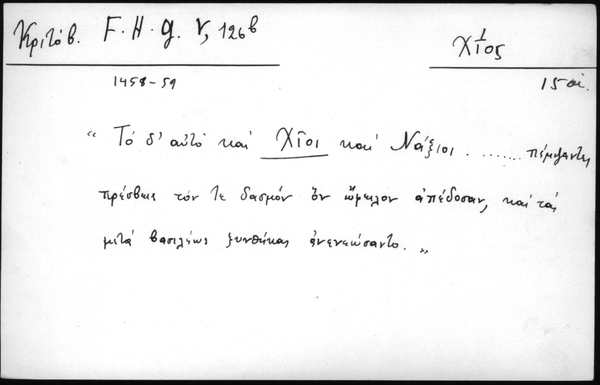 Κριτόβ. F. H. g. V, 126b
Χῖος
1458-59
15 αἰ.
"Τό δ' αὐτό καί Χῖοι καί Νάξιοι ........ πέμψαντες
πρέσβεις τόν τε δασμόν ὅν ὤφειλον ἀπέδοσαν, καί τάς
μετά βασιλέως ξυνθήκας ἀνενεώσαντο."